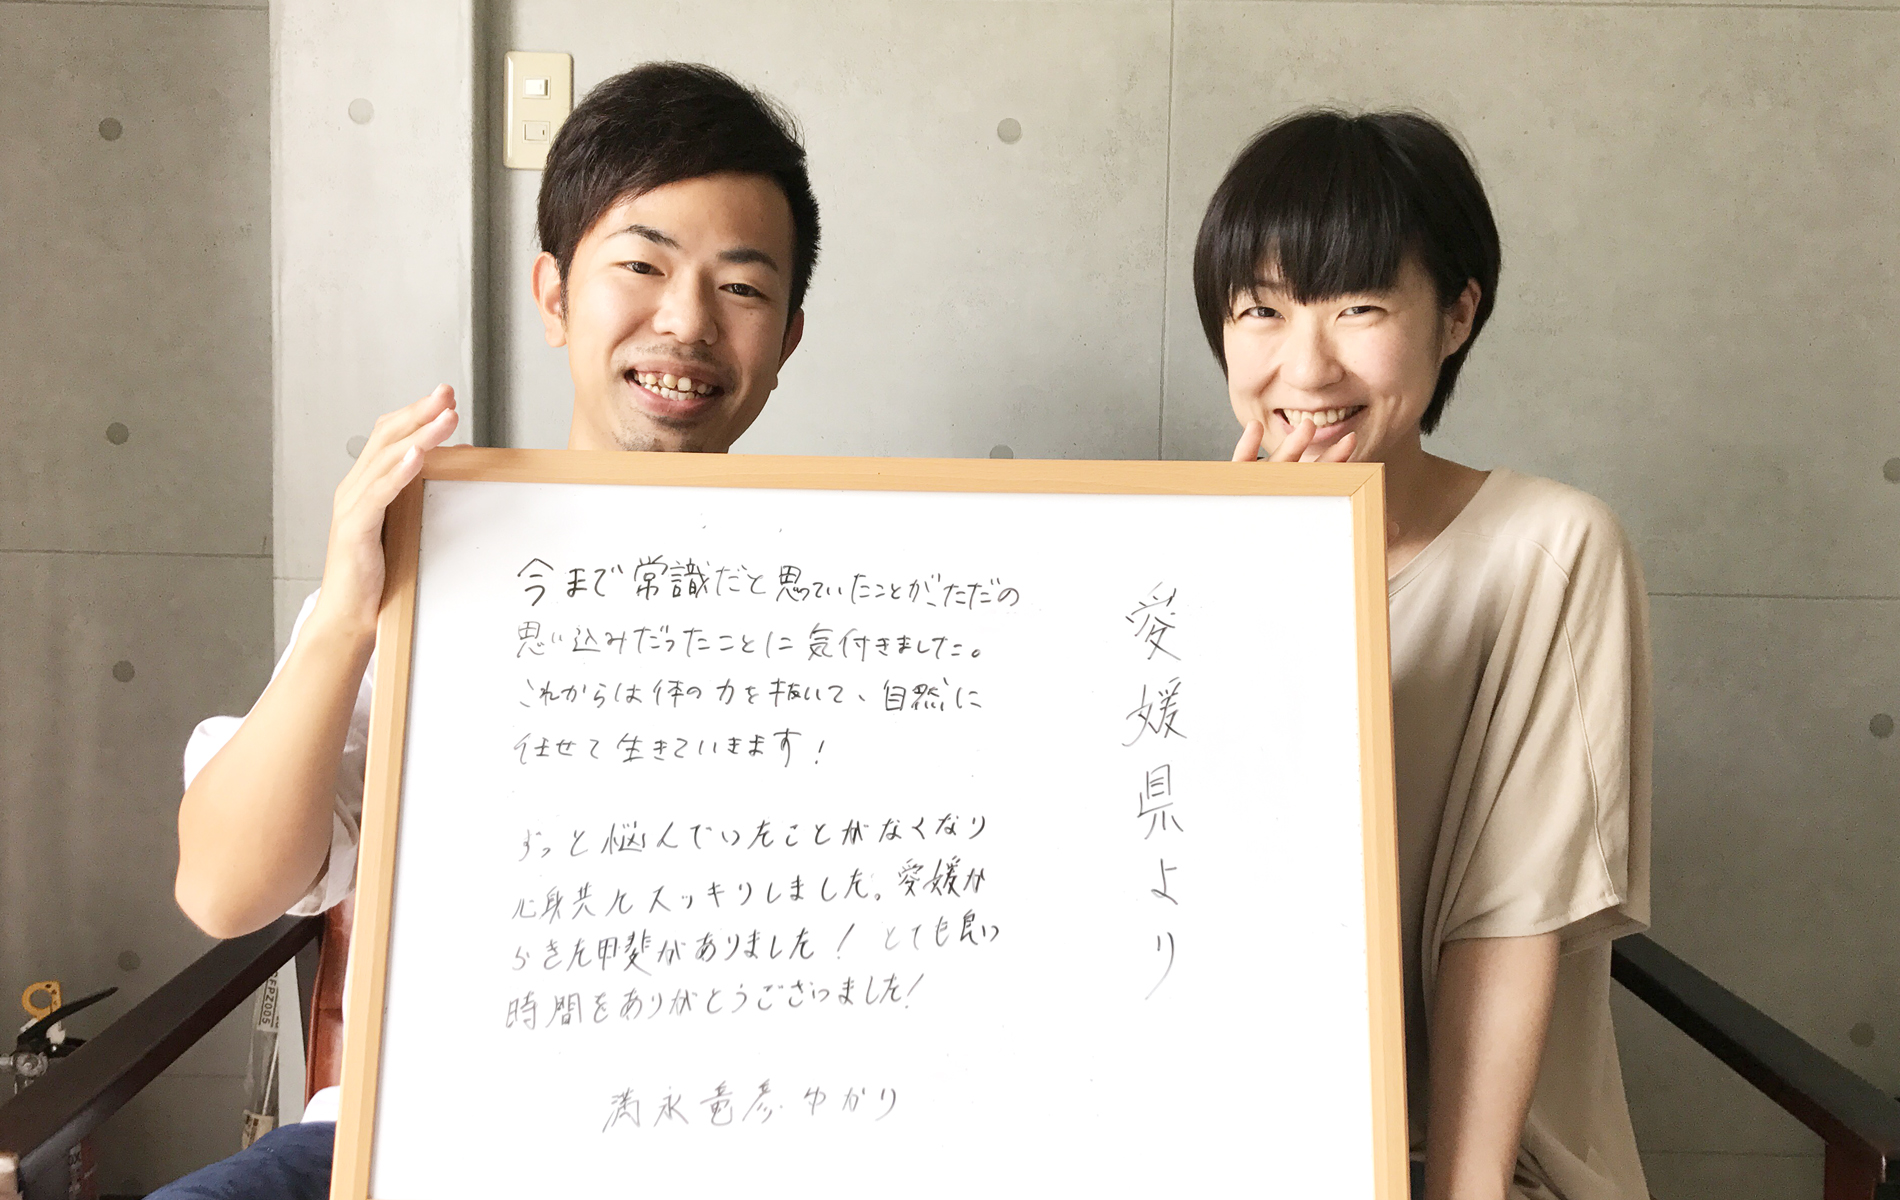 愛媛県より
今まで常識だと思っていたことが、ただの
思い込みだったことに気付きました。
これからは体の力を抜いて、自然に
任せて生きていきます!
ずっと悩んでいたことがなくなり
心身共にスッキリしました。愛媛か
らきた甲斐がありました! とても良い
時間をありがとうございました!
満永竜彦・ゆかり